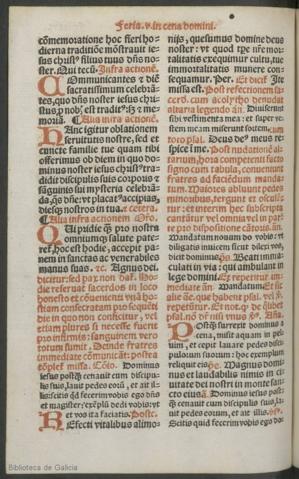 Feria.v.in cena domini.
cōmemoratione hoc fieri ho-
dierna traditiōe mōstravit ie-
sus christ⁹ filius tuus dn̄s no-
ster. Qui tecū. Infra actionē.
Communicantes ⁊ diē
sacratissimum celebrā-
tes, quo dn̄s noster iesus chri-
moriā. Alia infra actionē.
Hanc igitur oblationem
servitutis nostre, sed et
cuncte familie tue quam tibi
offerimus ob diem in quo do-
minus noster iesus christ⁹ tra-
didit discipulis suis corporis ⁊
sanguinis sui mysteria celebrā-
diesq₃ nostros in tua. et cetera.
Qui pridie q̄₃ pro nostra
omniumq₃ salute pate-
ret, hoc est hodie, accepit pa-
nem in sanctas ac venerabiles
manus suas. ⁊c. Agnus dei.
die
honesto et
in quo non conficitur, vel
etiam plures si necesse fuerit
pro infirmis: sanguinem vero
totum sumit. Deinde fratres
Dominus
iesus postq̄₃ cenavit cum discipu-
lis suis, lavit pedes eorū, et ait il-
lis: scitis qd̄ fecerim vobis ego dn̄s
et magister: exemplū dedi vobis: vt
et vos ita faciatis. Postc.
Refecti vitalibus alimo-
nijs, quesumus domine deus
noster: vt quod tp̄e nr̄e mor-
talitatis exequimur cultu, tue
immortalitatis munere con-
sequamur. Per. Et dicit Ite
missa est. Post refectionem sa-
cerd. cum acolytho denudat
altaria legendo añ. Diviserunt
sibi vestimenta mea: et super ve-
stem meam miserunt sortem, cum
toto psal. Deus de⁹ meus re-
spice ī me. Post nudationē al-
tarium, hora competenti facto
signo cum tabula, conveniunt
fratres ad faciēdum manda-
tum. Maiores abluunt pedes
minoribus, tergunt et osculā-
tur: et interim hec subscripta
cantātur vel omnia vel in par-
te pro dispositione cātoris. añ.
Mandatum novum do vobis: vt
diligatis invicem sicut dilexi vos,
dicit dominus. Beati immacu-
lati in via: qui ambulant in
lege domini. Et repetitur im-
mediate añ. Mandatum.
Postq̄₃ surrexit dominus a
cena, misit aquam in pel-
vim, et cepit lavare pedes disci-
pulorum suorum: hoc exemplum
reliquit eis. Magnus domi-
nus et laudabilis nimis in ci-
vitate dei nostri in monte san-
cto eius. Dominus iesus
postq̄₃ cenavit cum discipulis suis, la-
vit pedes eorum, et ait illis.
Scitis quid fecerim vobis ego do-
Biblioteca de Galicia